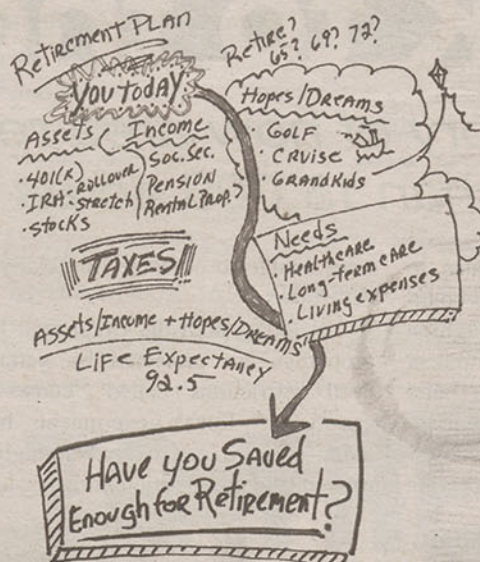 Retirement Plan
You Today
Assets
· 401(K)
· IRA: - Rollover
- Stretch
· Stocks
Income
Soc. Sec.
Pension
Rental Prop.?
Retire?
65? 69? 72?
Hopes/Dreams
· Golf
· Cruise
· Grandkids
Needs
· Healthcare
· Long-term care
· Living expenses
TAXES
Assets/Income + Hopes/Dreams
Life Expectancy
92.5
Have you Saved
Enough for Retirement?